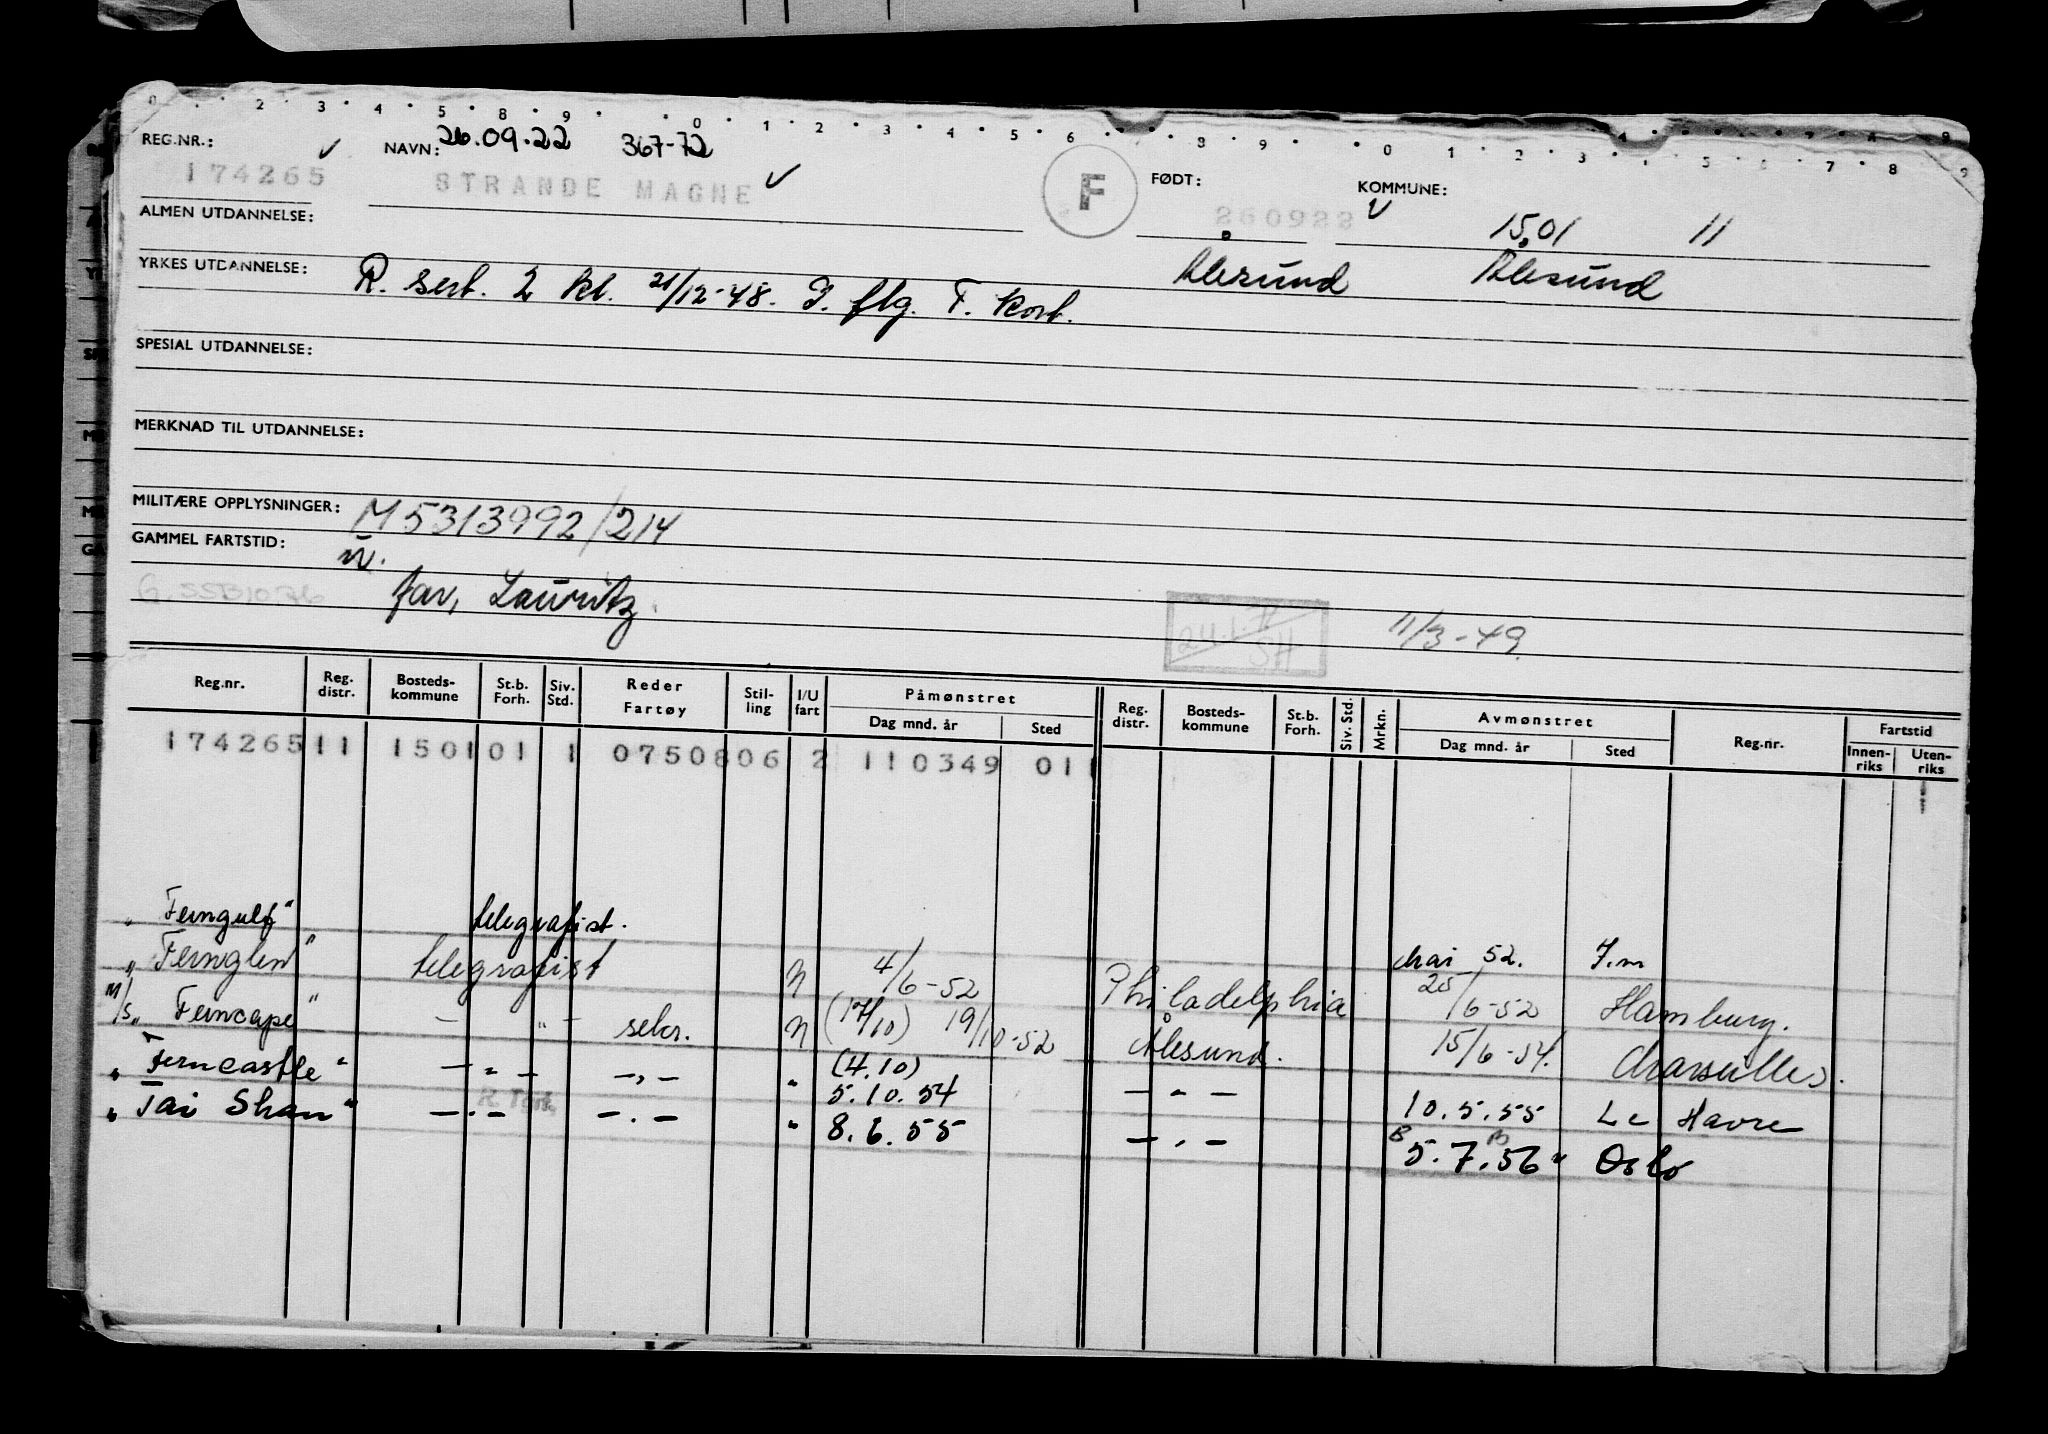 0 2 3 4 5 8 9 0 1 2 3 4 5 6 8 9 0 1 2 3 5 6 7 8 9
REG.NR.: NAVN: 26.09.22 367-72 FØDT: KOMMUNE:
174265 STRANDE MAGNE F 260922 1501 11
ALMEN UTDANNELSE: Ålesund Ålesund
YRKES UTDANNELSE: R. sert. 2 kl. 21/12-48. I. flg. T. kort.
SPESIAL UTDANNELSE:
MERKNAD TIL UTDANNELSE:
MILITÆRE OPPLYSNINGER: M5313992/214
GAMMEL FARTSTID: n.
G. SSB1076 far, Lauritz. SH 11/3-49.
Reg.nr. Reg. distr. Bosteds-kommune St.b. Forh. Siv. Std. Reder Fartøy Stil-ling I/U fart Påmønstret Reg. distr. Bosteds-kommune St.b. Forh. Siv. Std. Mrkn. Avmønstret Reg.nr. Fartstid
Dag mnd. år Sted Dag mnd. år Sted Innen-riks Uten-riks
174265 11 1501 01 1 0750806 2 110349 011
" Ferngulf" telegrafist. Mai 52. F.m
" Fernglen" telegrafist N 4/6-52 Philadelphia 25/6-52 Hamburg.
M/S " Ferncape" - " - sekr. N (17/10) 19/10-52 Ålesund. 15/6-54. Marseilles.
" Ferncastle" - " - - " - " (4.10) 5.10.54 - " - 10.5.55 Le Havre
" Tai Shan" - " - - " - " 8.6.55 - " - 5.7.56 Oslo